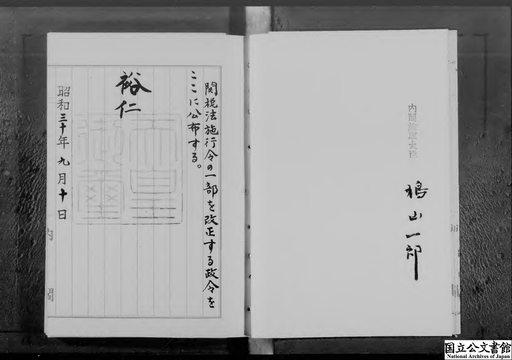 内閣総理大臣
鳩山一郎
関税法施行令の一部を改正する政令を
ここに公布する。
裕仁
天皇
御璽
昭和三十年九月十日
内閣
国立公文書館
National Archives of Japan